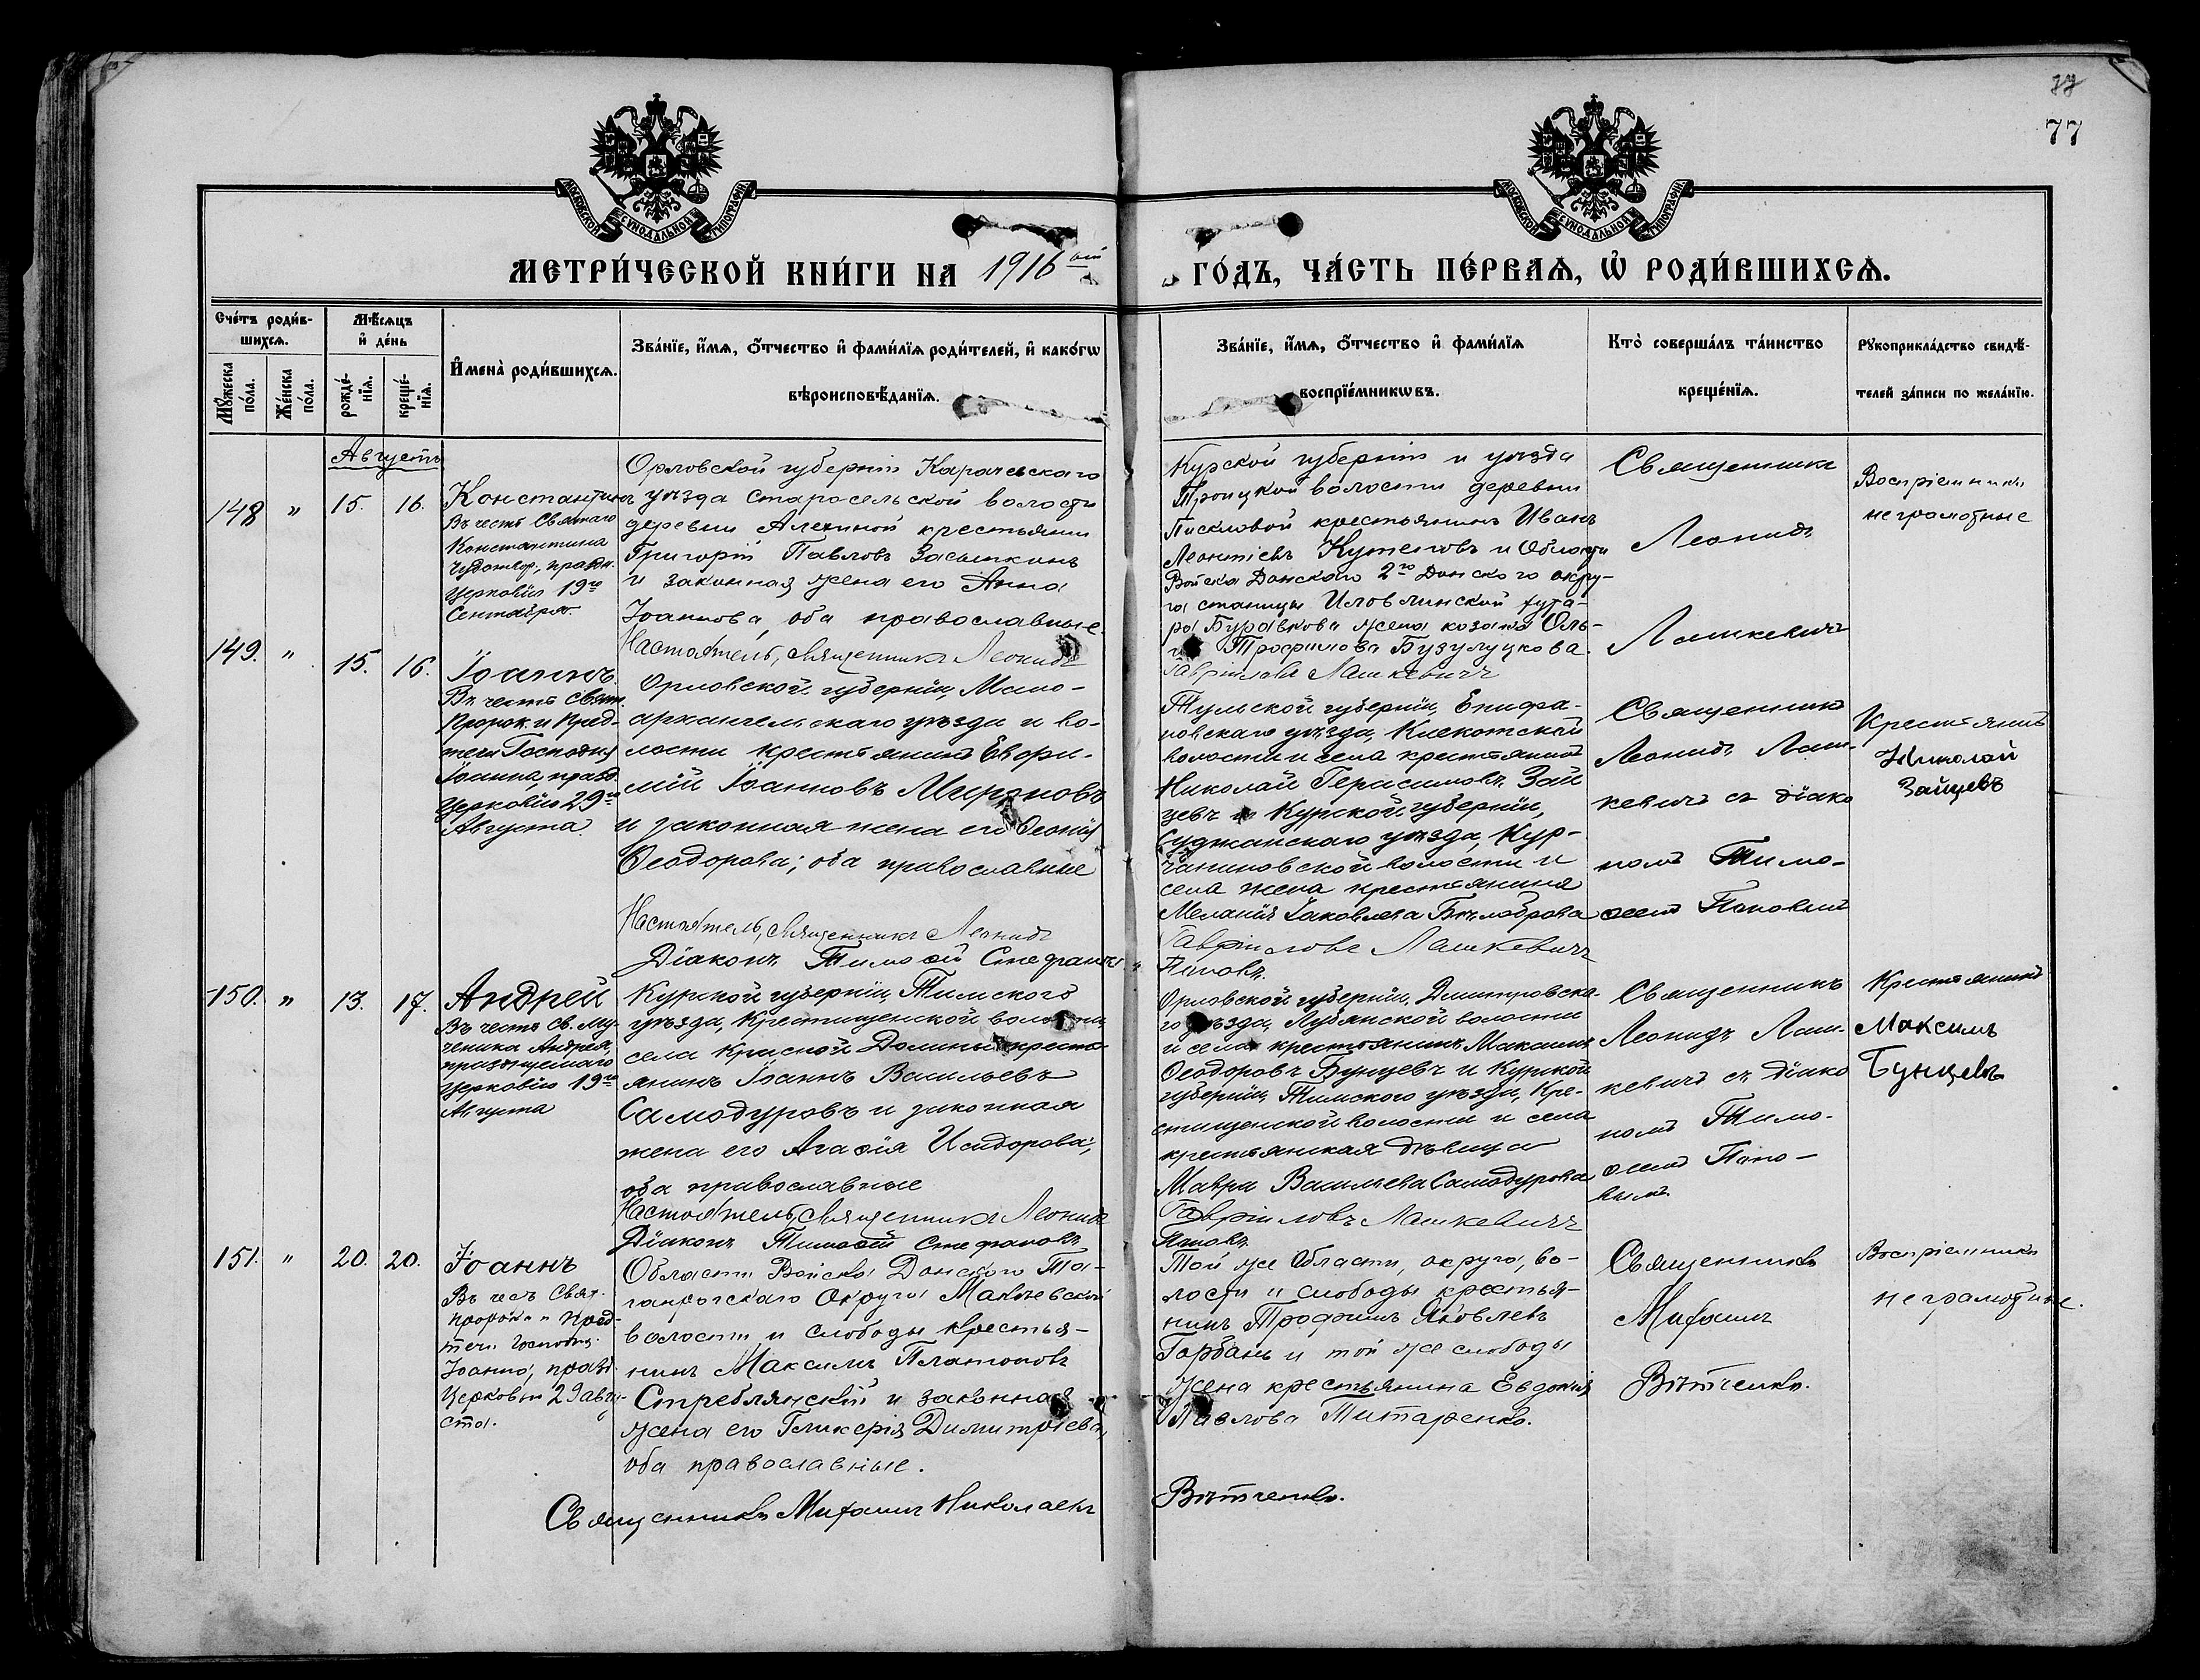 77
77
МОСКОВСКОЙ СѴНОДАЛЬНОЙ ТИПОГРАФІИ
МОСКОВСКОЙ СѴНОДАЛЬНОЙ ТИПОГРАФІИ
МЕТРИ́ЧЕСКОЙ КНИ́ГИ НА 1916 ый ГО́ДЪ, ЧА́СТЬ ПЕ́РВАѦ, Ѡ҆ РОДИ́ВШИХСѦ.
Сче́тъ роди́в-
шихсѧ.
Му́жеска по́ла.
Же́нска по́ла.
Мѣ́сѧцъ и҆ де́нь
рожде́-
нїѧ.
креще́-
нїѧ.
И҆мена̀ роди́вшихсѧ.
Зва́нїе, и҆́мѧ, ѻ҆́тчество и҆ фами́лїѧ роди́телей, и҆ како́гѡ
вѣроисповѣ́данїѧ.
Зва́нїе, и҆́мѧ, ѻ҆́тчество и҆ фами́лїѧ
воспрїе́мникѡвъ.
Кто̀ соверша́лъ та́инство
креще́нїѧ.
Рꙋкоприкла́дство свидѣ́-
телей за́писи по жела́нїю.
Августъ
148 " 15. 16.
Константинъ
Въ честь Святаго
Константина
Чудотвор., празн.
Церковію 19го
Сентября.
Орловской губерніи Карачевскаго
уѣзда Старосельской волости
деревни Алехиной крестьянин
Григорій Павловъ Засыпкинъ
и законная жена его Анна
Іоаннова, оба православные.
Настоятель, священникъ Леонидъ
Курской губерніи и уѣзда
Троицкой волости деревни
крестьянинъ Иванъ
Леонтіевъ и Области
Войска Донскаго 2го Донского окру-
га станицы Иловлинской хуто-
ра Буравкова жена козака Оль-
га Трофимова Бузулуцкова.
Гавріиловъ Лашкевичъ
Священникъ
Леонидъ
Лашкевичъ
Воспріемники
неграмотные
149. " 15. 16.
Іоаннъ.
Въ честь Свят.
Пророк. и Пред-
течи Господня
Іоанна, празд.
Церковію 29го
Августа.
Орловской губерніи, Мало-
архангельскаго уѣзда и во-
лости крестьянинъ Евфи-
мій Іоанновъ Мироновъ
и законная жена его
Ѳеодорова; оба православные
Настоятель, священникъ Леонидъ
Діаконъ Тимоѳей Стефановъ
Тульской губерніи, Епифа-
новскаго уѣзда, Клекотской
волости и села крестьянинъ
Николай Герасимовъ Зай
цевъ и Курской губерніи,
Суджанскаго уѣзда, Кур-
чаниновской волости и
села жена крестьянина
Меланія Іаковлева Бѣлоброва
Гавріиловъ Лашкевичъ
Поповъ.
Священникъ
Леонидъ Лаш-
кевичъ съ діако
номъ Тимо-
ѳеемъ Поповымъ
Крестьянинъ
Николай
Зайцевъ
150. " 13. 17.
Андрей
Въ честь Св. Му-
ченика Андрея,
празднуемаго
Церковію 19го
Августа
Курской губерніи, Тимского
уѣзда, Крестищенской волости
села Красной Долины кресть-
янинъ Іоаннъ Васильевъ
Самодуровъ и законная
жена его Агаѳія Исидорова;
оба православные
Настоятель, священникъ Леонидъ
Діаконъ Тимоѳей Стефановъ
Орловской губерніи, Дмитровска-
го уѣзда, Лубянской волости
и села крестьянинъ Максимъ
Ѳеодоровъ Бунцевъ и Курской
губерніи, Тимского уѣзда, Кре-
стищенской волости и села
крестьянская дѣвица
Мавра Васильева Самодурова
Гавріиловъ Лашкевичъ
Поповъ.
Священникъ
Леонидъ Лаш-
кевичъ съ діако
номъ Тимо-
ѳеемъ Попо-
вымъ
Крестьянинъ
Максимъ
Бунцевъ
151. " 20. 20.
Іоаннъ
Въ чест Свят.
пророка и Пред-
течи Господня
Іоанна, празд.
Церковью 29 авгу-
ста.
Области Войска Донского Та-
ганрогскаго Округа Макѣевской
волости и слободы кресть­я-
нинъ Максимъ Платоновъ
Стреблянскій и законная
жена его Гликерія Димитріева,
оба православные.
Священникъ Митрофанъ Николаевъ
Той же Области, округа, во-
лости и слободы крестья-
нинъ Трофимъ Яковлевъ
Горбань и той же слободы
жена крестьянина Евдокія
Павлова Титаренко.
Вѣтченко.
Священникъ
Вѣтченко.
Воспріемники
неграмотные.